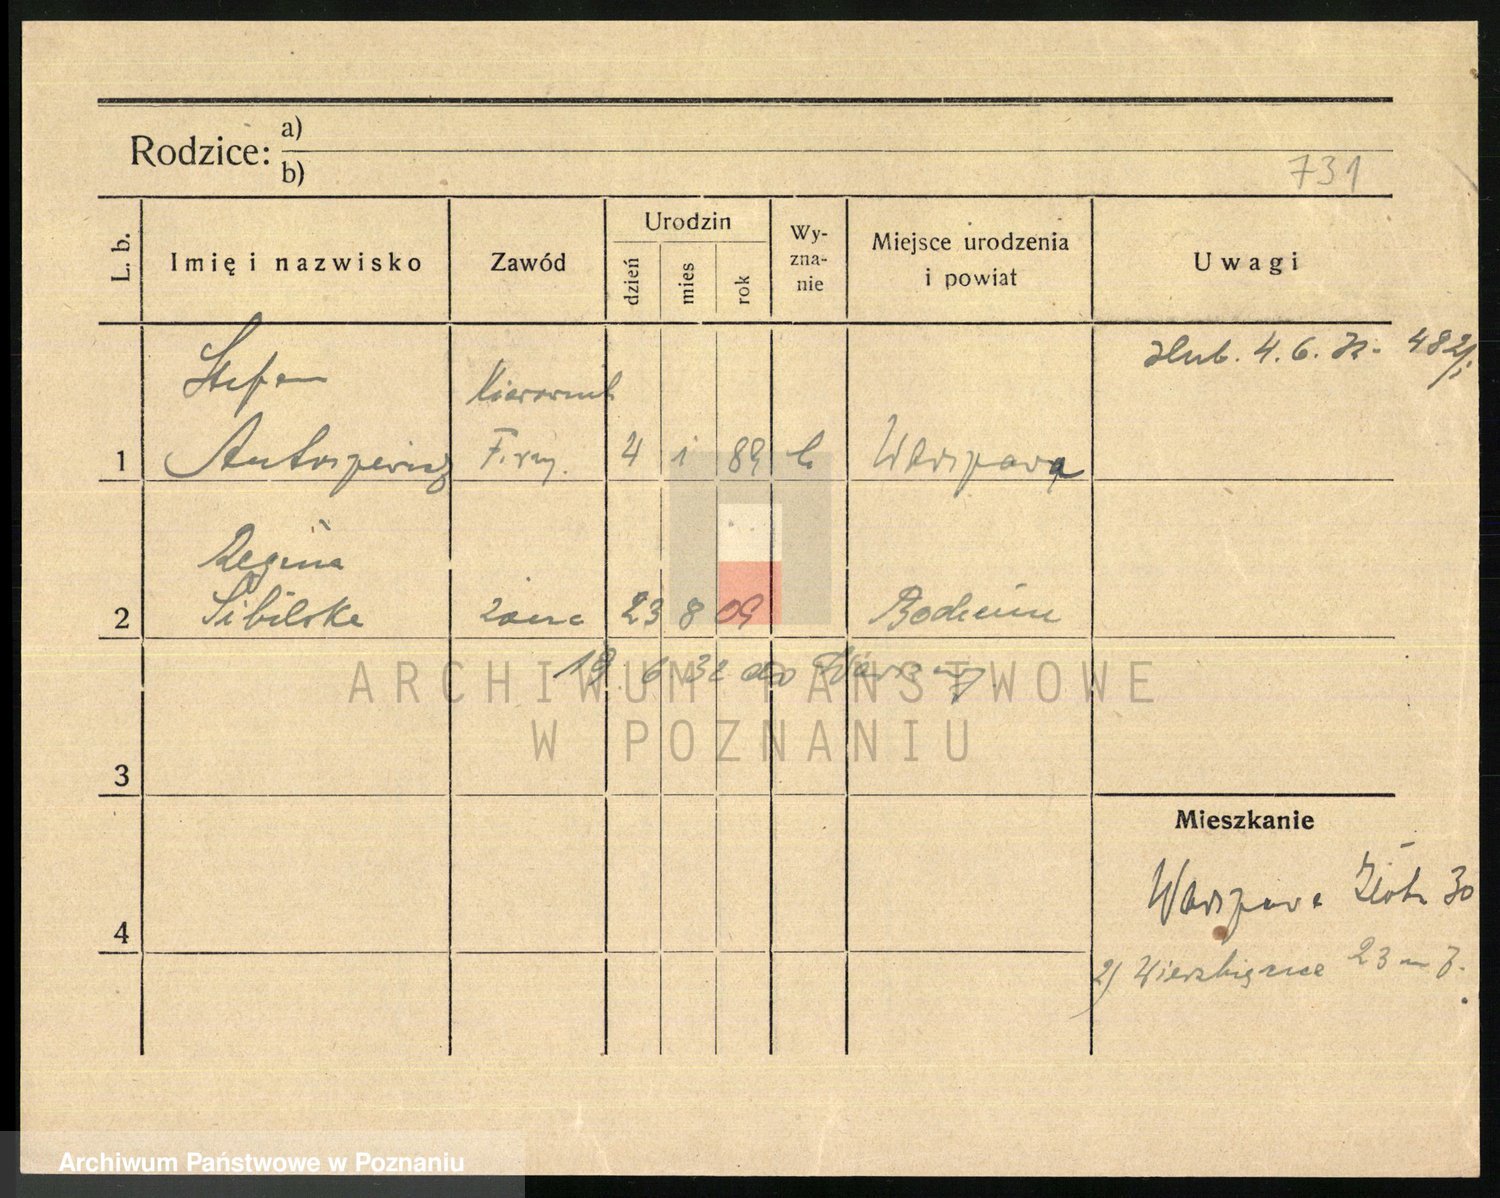 Rodzice: a)
b)
731
L. b.
Imię i nazwisko
Zawód
Urodzin
dzień
mies
rok
Wy-
zna-
nie
Miejsce urodzenia
i powiat
Uwagi
4. 6. 32. 482/
Stefan
Kierownik
1 Antoszewicz Firmy. 4 i 89 Warszawa
Regina
2 Sibilska żona 23 8 09 Bochum
19. 6. 32 do Warszawy
ARCHIWUM PAŃSTWOWE
W POZNANIU
3
Mieszkanie
Warszawa Złota 30
4
2) Wierzbięcice 23 m 7.
Archiwum Państwowe w Poznaniu